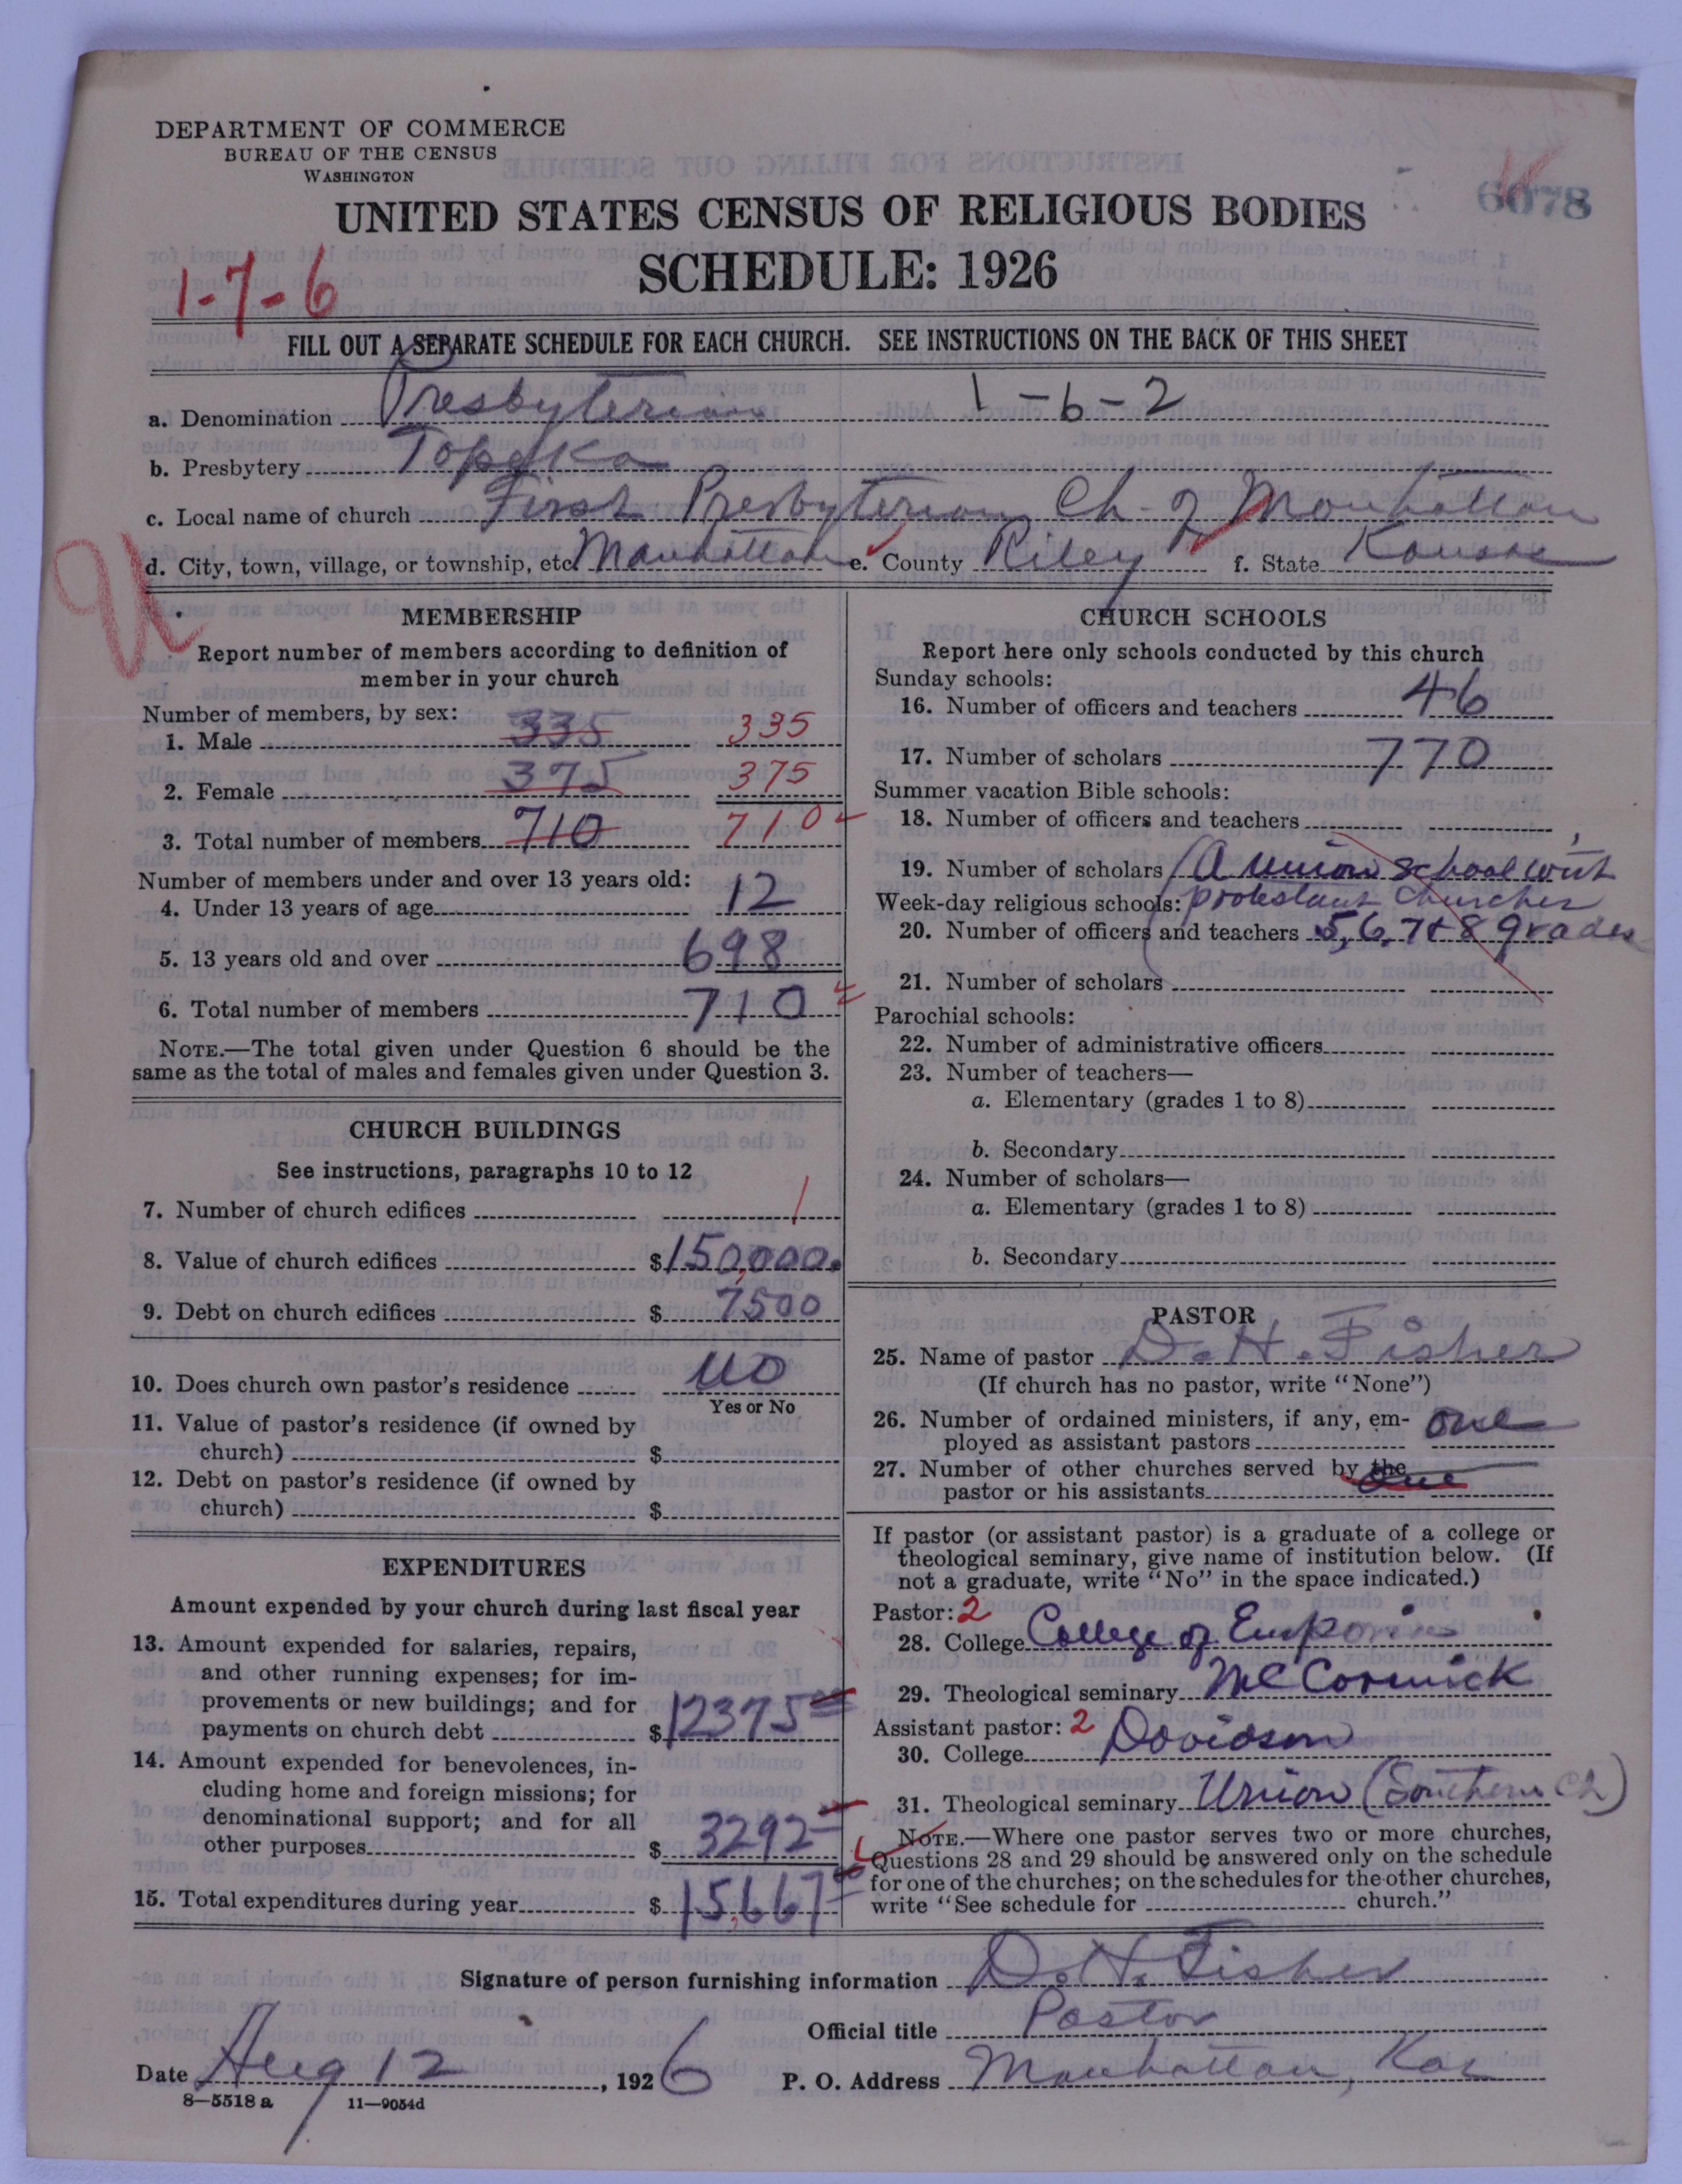 DEPARTMENT OF COMMERCE
BUREAU OF THE CENSUS
WASHINGTON
6078
UNITED STATES CENSUS OF RELIGIOUS BODIES
SCHEDULE: 1926
1-7-6
FILL OUT A SEPARATE SCHEDULE FOR EACH CHURCH. SEE INSTRUCTIONS ON THE BACK OF THIS SHEET
a. Denomination Presbyterian 1-6-2
b. Presbytery Topeka
c. Local name of church First Presbyterian Ch. of Manhattan
d. City, town, village, or township, etc. Manhattan e. County Riley f. State Kansas
MEMBERSHIP
Report number of members according to definition of
member in your church
Number of members, by sex:
1. Male 335 335
2. Female 375 375
3. Total number of members 710 710
Number of members under and over 13 years old:
4. Under 13 years of age 12
5. 13 years old and over 698
6. Total number of members 710
NOTE.—The total given under Question 6 should be the
same as the total of males and females given under Question 3.
CHURCH BUILDINGS
See instructions, paragraphs 10 to 12
7. Number of church edifices 1
8. Value of church edifices $150,000.
9. Debt on church edifices $ 7500
10. Does church own pastor's residence no
Yes or No
11. Value of pastor's residence (if owned by
church) $
12. Debt on pastor's residence (if owned by
church) $
EXPENDITURES
Amount expended by your church during last fiscal year
13. Amount expended for salaries, repairs,
and other running expenses; for im-
provements or new buildings; and for
payments on church debt $12375
14. Amount expended for benevolences, in-
cluding home and foreign missions; for
denominational support; and for all
other purposes $ 3292
15. Total expenditures during year $ 15,667
CHURCH SCHOOLS
Report here only schools conducted by this church
Sunday schools:
16. Number of officers and teachers 46
17. Number of scholars 770
Summer vacation Bible schools:
18. Number of officers and teachers
19. Number of scholars (A union school with
Week-day religious schools: protestant churches
20. Number of officers and teachers 5, 6, 7 & 8 grades
21. Number of scholars
Parochial schools:
22. Number of administrative officers
23. Number of teachers—
a. Elementary (grades 1 to 8)
b. Secondary
24. Number of scholars—
a. Elementary (grades 1 to 8)
b. Secondary
PASTOR
25. Name of pastor D. H. Fisher
(If church has no pastor, write "None")
26. Number of ordained ministers, if any, em-
ployed as assistant pastors one
27. Number of other churches served by the
pastor or his assistants one
If pastor (or assistant pastor) is a graduate of a college or
theological seminary, give name of institution below. (If
not a graduate, write "No" in the space indicated.)
Pastor: 2
28. College College of Emporia
29. Theological seminary McCormick
Assistant pastor: 2
30. College Davidson
31. Theological seminary Union (Southern Ch)
NOTE.—Where one pastor serves two or more churches,
Questions 28 and 29 should be answered only on the schedule
for one of the churches; on the schedules for the other churches,
write "See schedule for church."
Signature of person furnishing information D. H. Fisher
Official title Pastor
Date Aug 12, 1926 P. O. Address Manhattan, Kas
8—5518 a 11—9054d